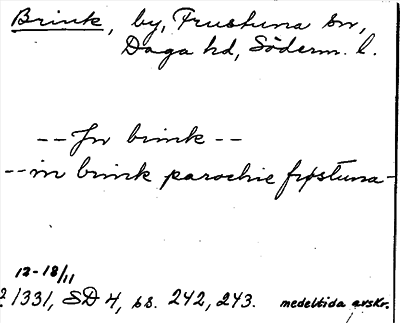 Brink, by, Frustuna sn,
Daga hd, Söderm. l.
-- Jn brink --
-- in brink parochie frøstuna -
12-18/11
2/331, SD 4, ss. 242, 243. medeltida avskr.